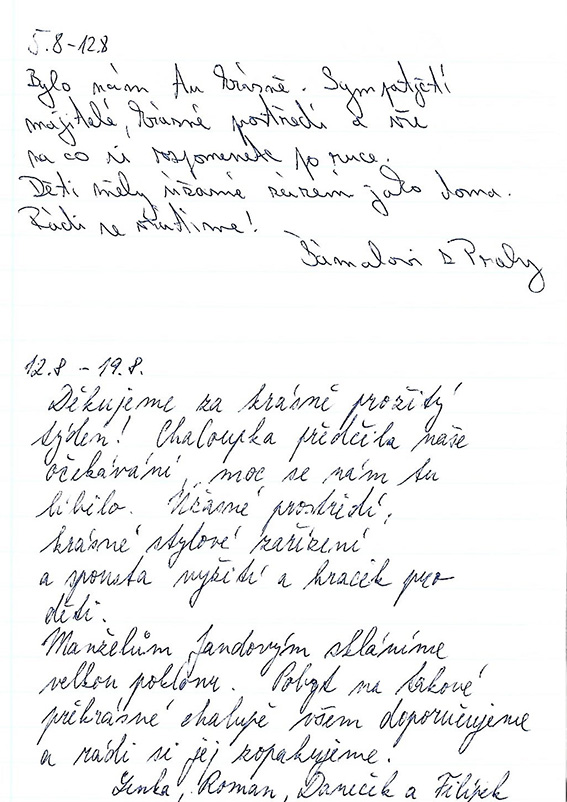 5.8-12.8
Bylo nám tu krásně. Sympatičtí
majitelé, krásné prostředí a vše
na co si vzpomenete po ruce.
Děti měly úžasné zázemí jako doma.
Rádi se vrátíme!
Šámalovi z Prahy
12.8 - 19.8.
Děkujeme za krásně prožitý
týden! Chaloupka předčila naše
očekávání, moc se nám tu
líbilo. Úžasné prostředí,
krásné stylové zařízení
a spousta vyžití a hraček pro
děti.
Manželům Jandovým skláníme
velkou poklonu. Pobyt na takové
překrásné chalupě všem doporučujeme
a rádi si jej zopakujeme.
Lenka, Roman, Daneček a Filípek